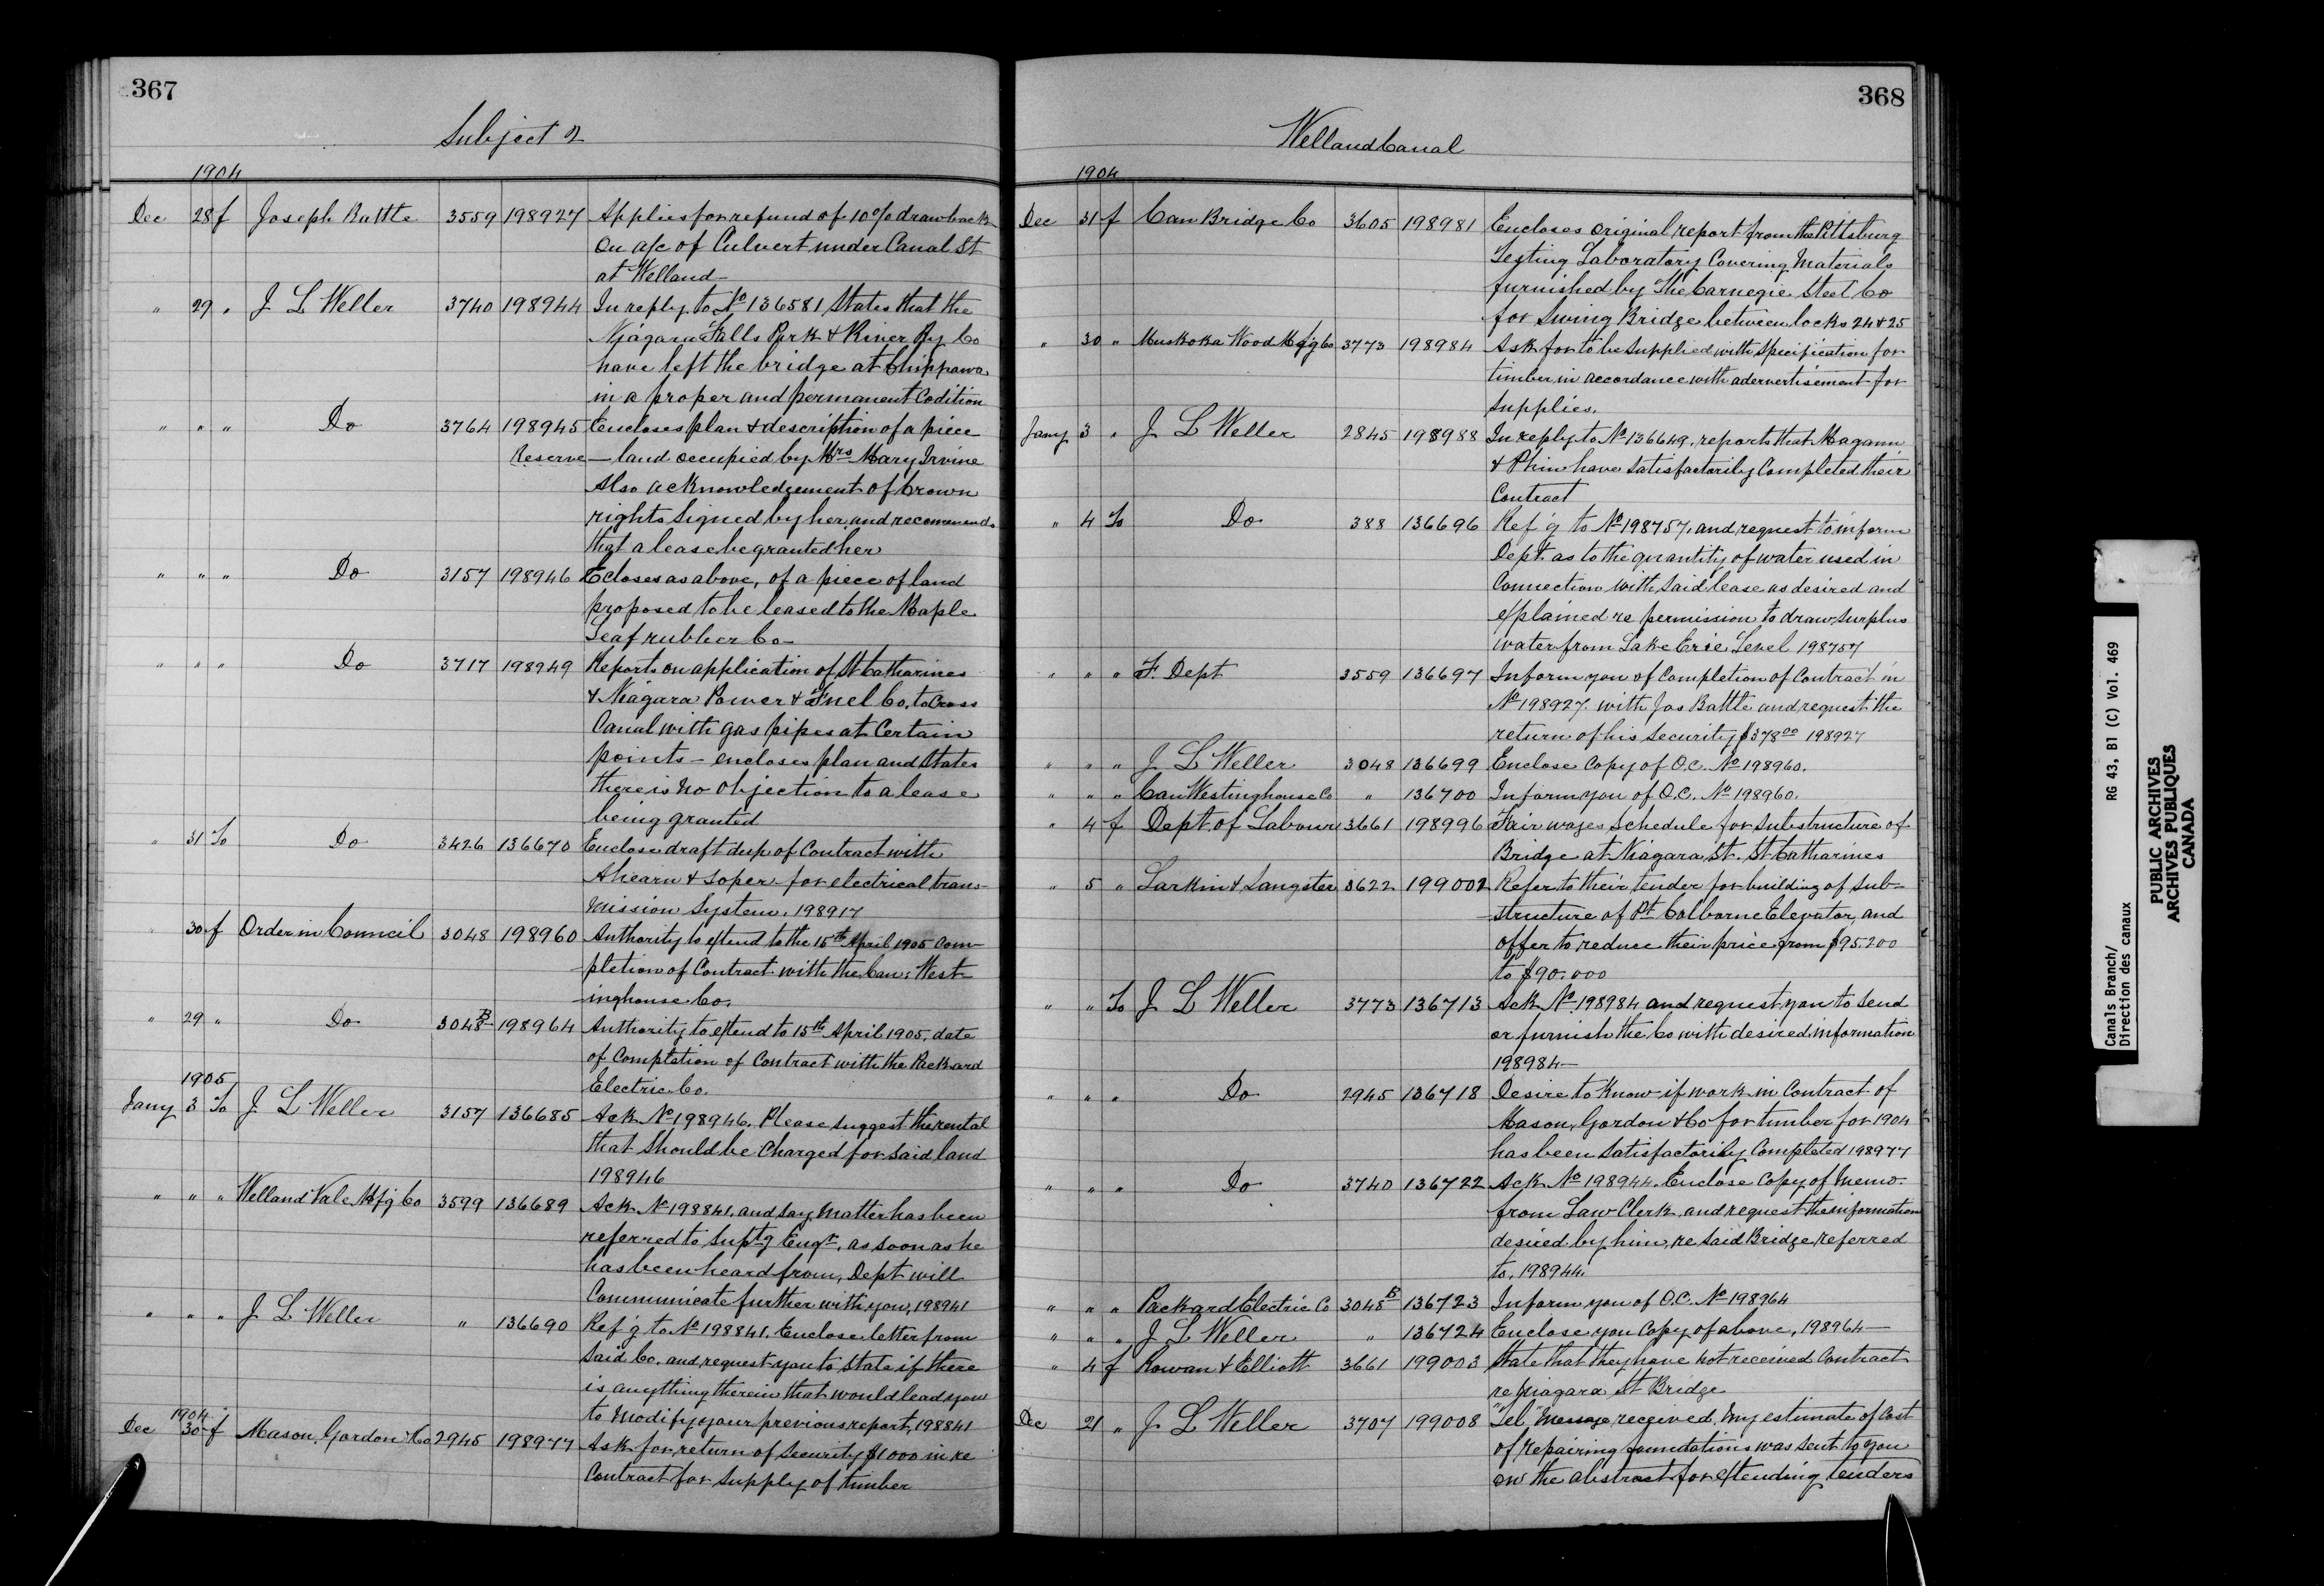 367
Subject 2
1904
Dec 28 f Joseph Battle 3559 198927 Applies for refund of 10% drawback
on a/c of Culvert under Canal St
at Welland—
" 29 " J L Weller 3740 198944 In reply to No 136581 States that the
Niagara Falls Park & River Ry Co
have left the bridge at Chippawa
in a proper and permanent Codition
" " " Do 3764 198945 Encloses plan & description of a piece
Reserve — land occupied by Mrs Mary Irvine
Also acknowledgement of Crown
rights signed by her, and recommends
that a lease be granted her
" " " Do 3157 198946 Ecloses as above, of a piece of land
proposed to be leased to the Maple
Leaf rubber Co—
" " " Do 3717 198949 Reports on application of St Catharines
& Niagara Power & Fuel Co. to Cross
Canal with gas pipes at Certain
points — encloses plan and States
there is no objection to a lease
being granted
" 31 To Do 3426 136670 Enclose draft dup of Contract with
Ahearn & Soper for electrical trans-
mission System. 198917
" 30 f Order in Council 3048 198960 Authority to extend to the 15th April 1905 Com-
-pletion of Contract with the Can: West-
-inghouse Co.
" 29 " Do 3048B 198964 Authority to extend to 15th April 1905, date
of Completion of Contract with the Packard
Electric Co.
1905
Jany 3 To J L Weller 3157 136685 Ack No 198946. Please suggest the rental
that should be charged for said land
198946
" " " Welland Vale Mfg Co 3599 136689 Ack No 198841. and say matter has been
referred to Suptg Engr. as soon as he
has been heard from, Dept will
Communicate further with you, 198941
" " " J L Weller " 136690 Ref'g to No 198841. Enclose letter from
said Co. and request you to state if there
is anything therein that would lead you
to modify your previous report, 198841
1904
Dec 30 f Mason, Gordon & Co 2945 198977 Ask for return of Security $1000 in re
Contract for supply of timber
368
Welland Canal
1904
Dec 31 f Can Bridge Co 3605 198981 Encloses original report from the Pittsburg
Testing Laboratory Covering Materials
furnished by The Carnegie Steel Co
for Swing Bridge between locks 24 & 25
" 30 " Muskoka Wood Mfg Co 3773 198984 Ask for to be supplied with specification for
timber in accordance with adervertisement for
supplies.
Jany 3 " J L Weller 2845 198988 In reply to No 136649, reports that Magann
& Phin have satisfactorily Completed their
Contract
" 4 To Do 388 136696 Ref'g to No 198757, and request to inform
Dept. as to the quantity of water used in
Connection with said lease as desired and
explained re permission to draw surplus
water from Lake Erie Level 198757
" " " F. Dept 3559 136697 Inform you of Completion of Contract in
No 198927 with Jos Battle and request the
return of his Security $378 00 198927
" " " J L Weller 3048 136699 Enclose Copy of O.C. No 198960.
" " " Can Westinghouse Co " 136700 Inform you of O.C. No 198960.
" 4 f Dept of Labour 3661 198996 Fair wages Schedule for substructure of
Bridge at Niagara St. St Catharines
" 5 " Larkin & Sangster 3622 199002 Refer to their tender for building of sub-
-structure of Pt Colborne Elevator, and
offer to reduce their price from $95.200
to $90.000
" " To J L Weller 3773 136713 Ack No 198984 and request you to send
or furnish the Co with desired information
198984—
" " " Do 2945 136718 Desire to know if work in Contract of
Mason, Gordon & Co for timber for 1904
has been satisfactorily Completed 198977
" " " Do 3740 136722 Ack No 198944. Enclose Copy of memo-
from Law Clerk, and request the information
desired by him, re said Bridge, referred
to. 198944.
" " " Packard Electric Co 3048B 136723 Inform you of O.C. No 198964
" " " J L Weller " 136724 Enclose you Copy of above, 198964—
" 4 f Rowan & Elliott 3661 199003 State that they have not received Contract
re Niagara St Bridge
Dec 21 " J L Weller 3707 199008 "Tel" Message received. My estimate of Cost
of repairing foundations was sent to you
on the abstract for extending tenders
Canals Branch/
Direction des canaux
RG 43, B1 (C) Vol. 469
PUBLIC ARCHIVES
ARCHIVES PUBLIQUES
CANADA